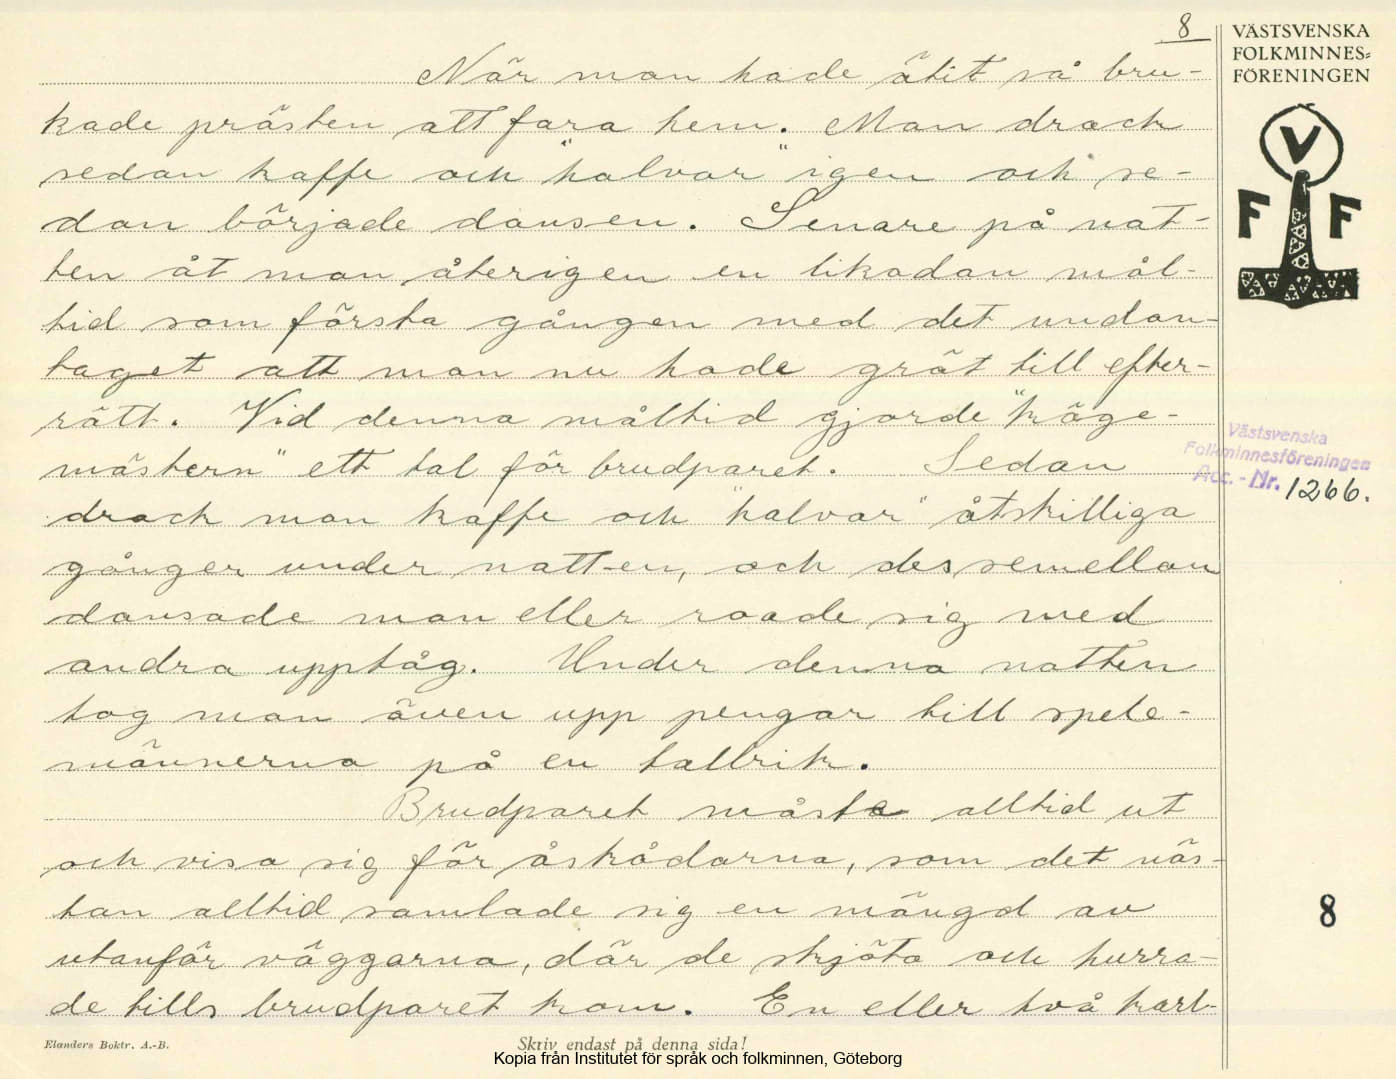 8
När man hade ätit så bru-
kade prästen att fara hem. Man drack
sedan kaffe och "halvar" igen och se-
dan började dansen. Senare på nat-
ten åt man återigen en likadan mål-
tid som första gången med det undan-
taget att man nu hade gröt till efter-
rätt. Vid denna måltid gjorde "köge-
mästern" ett tal för brudparet. Sedan
drack man kaffe och "halvar" åtskilliga
gånger under natten, och dessemellan
dansade man eller roade sig med
andra upptåg. Under denna natten
tog man även upp pengar till spele-
männerna på en tallrik.
Brudparet måste alltid ut
och visa sig för åskådarna, som det näs-
tan alltid samlade sig en mängd av
utanför väggarna, där de skjöto och hurra-
de tills brudparet kom. En eller två karl-
Elanders Boktr. A.-B.
Skriv endast på denna sida!
Kopia från Institutet för språk och folkminnen, Göteborg
VÄSTSVENSKA
FOLKMINNES-
FÖRENINGEN
V
F F
Västsvenska
Folkminnesföreningen
Acc. - Nr. 1266.
8